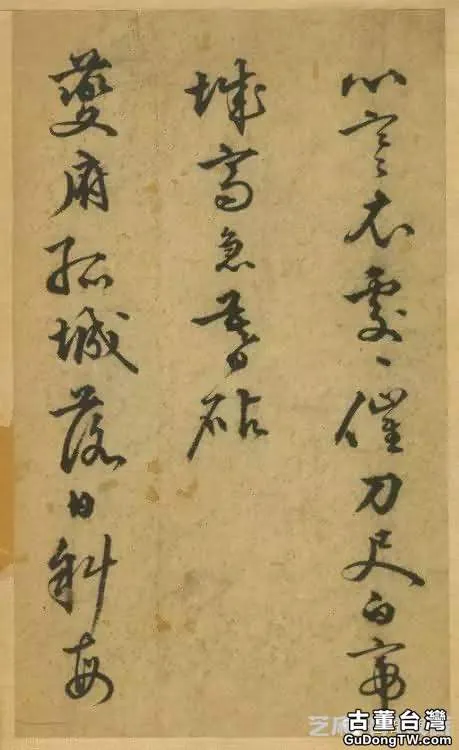 心寒衣處〻催刀尺白帝
城高急暮砧
夔府孤城落日斜每
古董台灣
GuDongTW.com